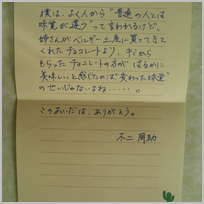 僕は、よく人から"普通の人とは
味覚が違う"って言われるけど、
姉さんがベルギー土産に買ってきて
くれたチョコレートより、キミから
もらったチョコレートの方が はるかに
美味しいと感じたのは"変わった味覚"
のせいじゃないよね……。
このあいだは、ありがとう。
不二 周助